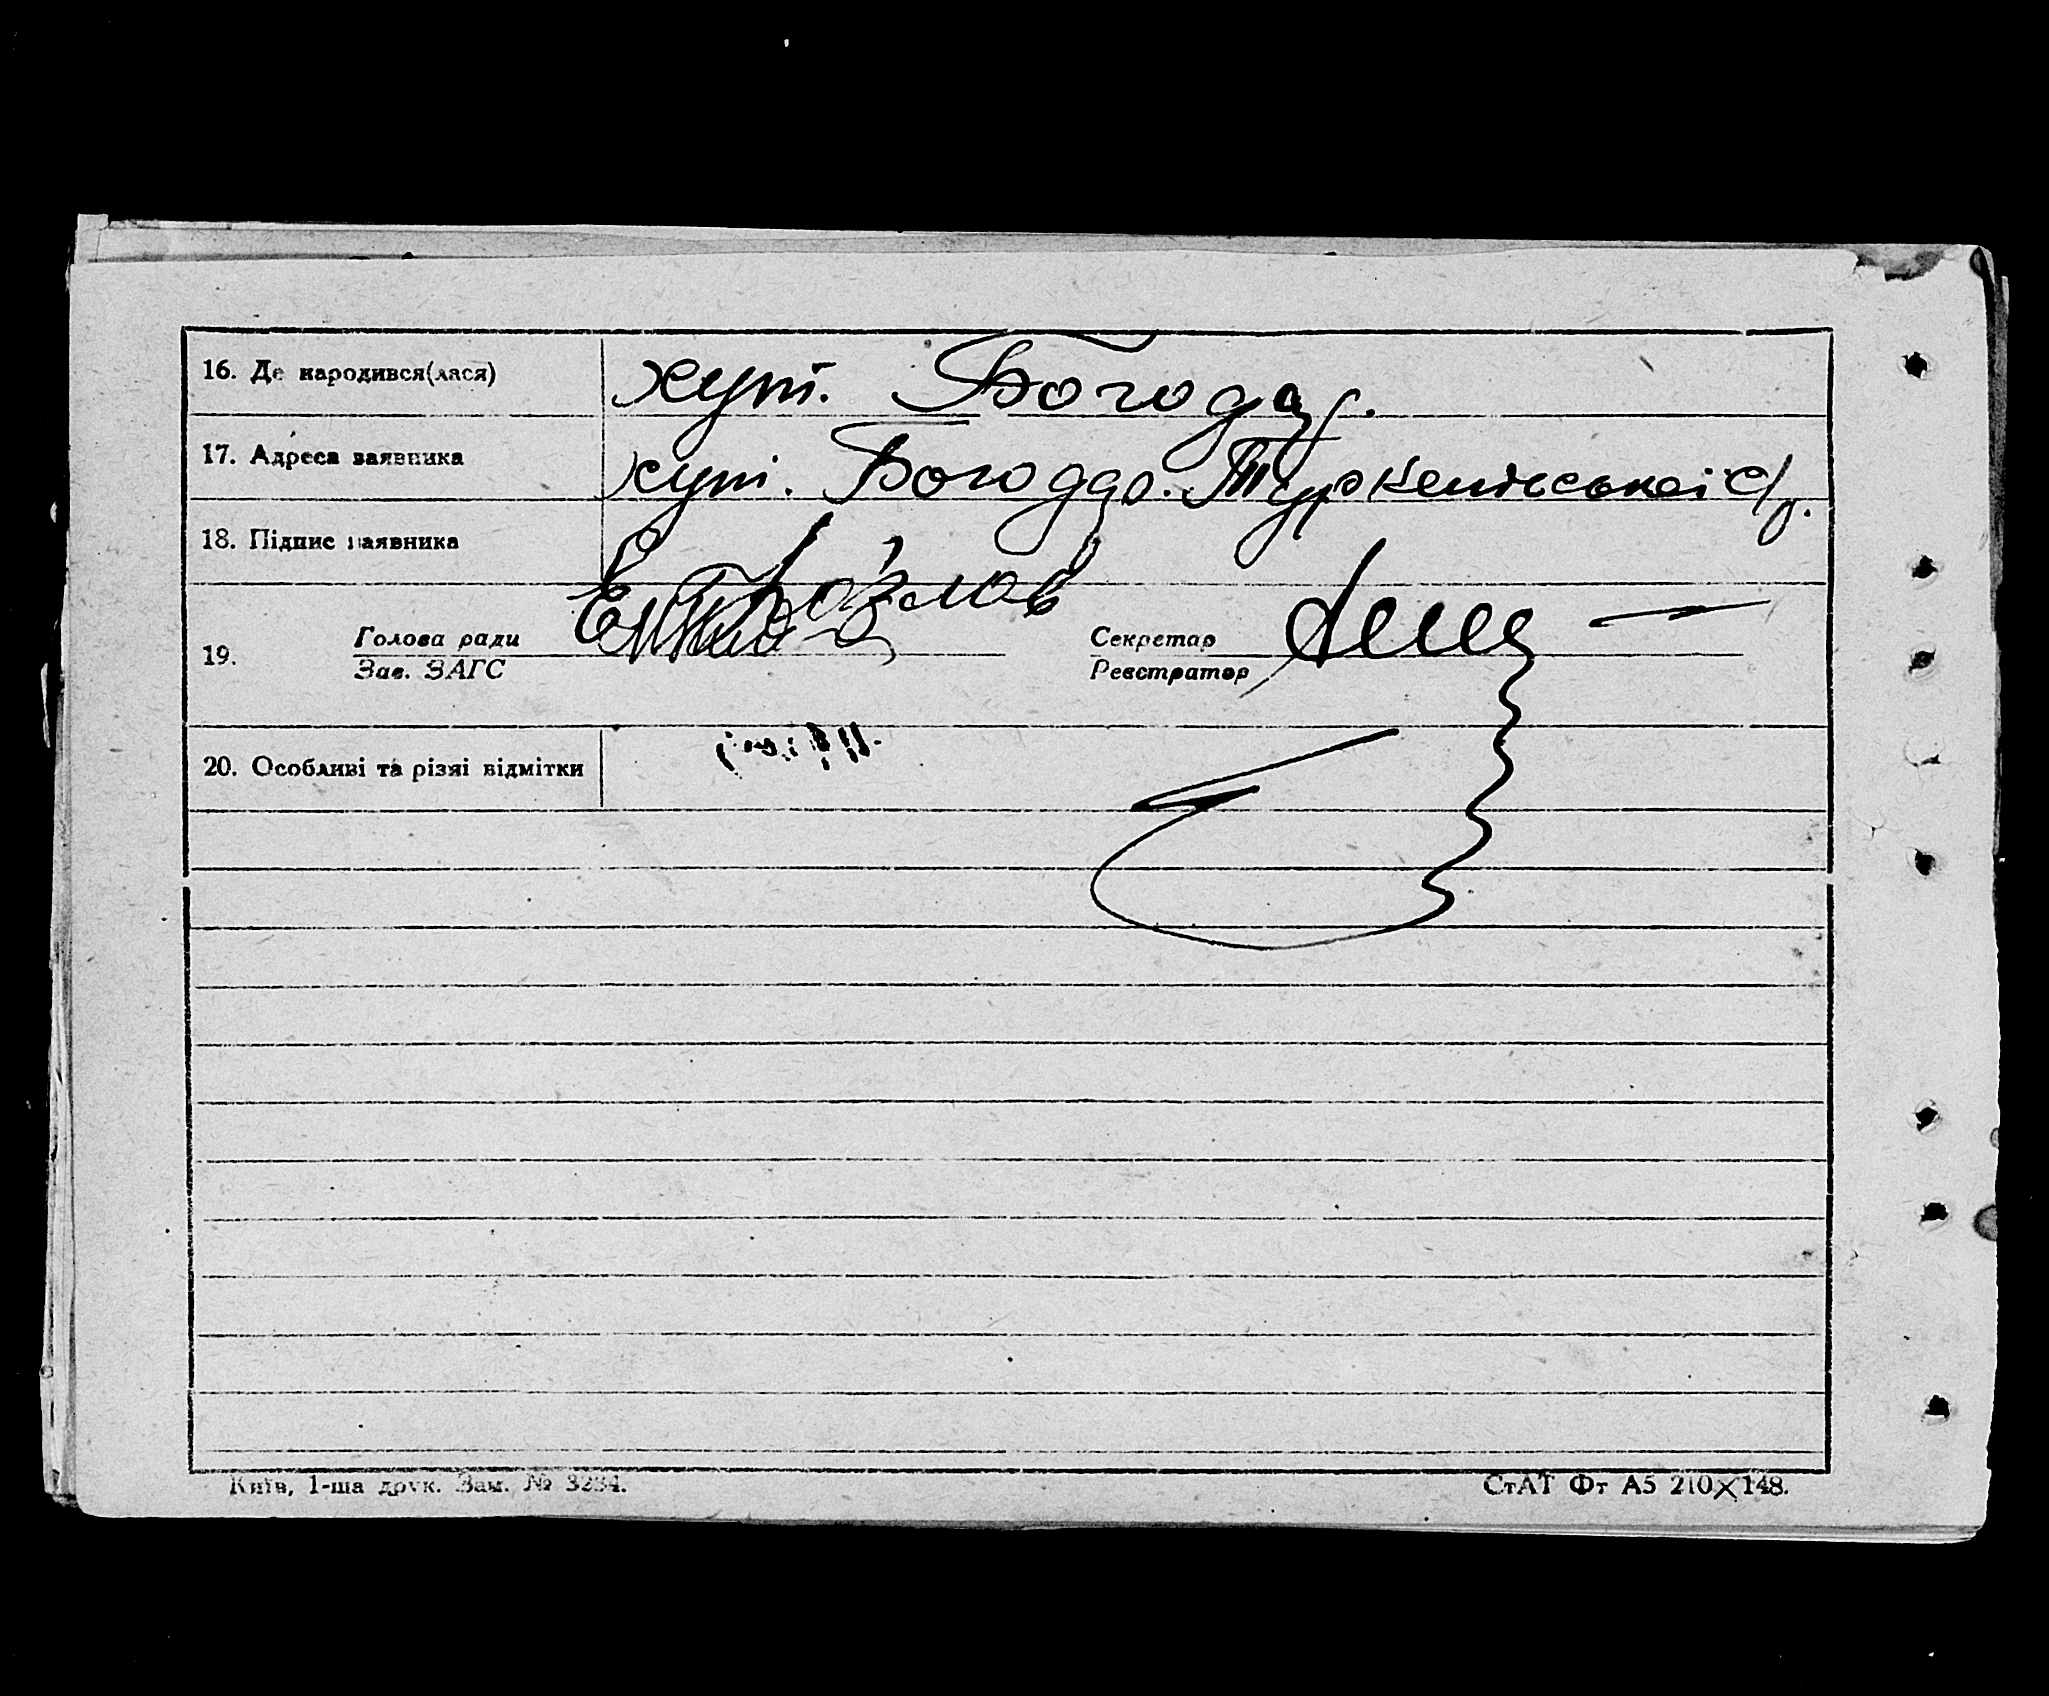 16. Де народився(лася) хут. Богодар.
17. Адреса заявника хут. Богодар. Туркенівської с/р.
18. Підпис заявника
19. Голова ради Секретар
Зав. ЗАГС Реєстратор
20. Особливі та різні відмітки
Київ, 1-ша друк. Зам. № 3234. СтАТ Фт А5 210×148.